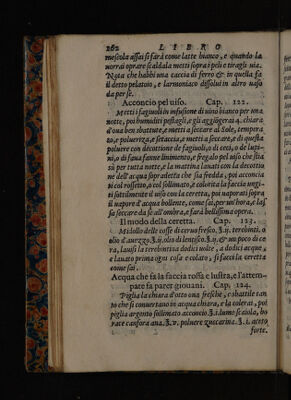 262 LIBRO
mescola assai si farà come latte bianco, e quando la
vorrai oprare scaldala metti sopra i peli e tiragli via.
Nota che habbi una caccia di ferro & in quella fa
il detto pelatoio, e larmoniaco dissolui in altro uaso
da per se.
Acconcio pel uiso. Cap. 122.
Metti i fagiuoli in infusione di uino bianco per una
notte, poi humiditi pestagli, e gli aggiongerai 4. chiara
d'oua ben sbattute, e metti a seccare al Sole, tempera
to, e poluerizza, e setaccia, e metti a seccare, e di questa
poluere con decottione de fagiuoli, o di ceci, o de lupi-
ni, o di faua fanne linimento, e fregalo pel uiso che stia
sù per tutta notte, e la mattina lanati con la decottio
ne dell'acqua sopradetta che sia fredda, poi acconcia
ti col rossetto, o col sollimato, e colorita la faccia ungi-
ti sottilmente il uiso con la ceretta, poi uaporati sopra
il uapore d'acqua bollente, come sai, per un'hora, e las
sa seccare da se all'ombra, e farà bellissima opera.
Il modo della ceretta. Cap. 123.
Midollo delle cosse di ceruo fresco. ʒ.ij. terebinti, o
olio d'auezzo. ʒ.ij. olio di lentisco. ʒ.ij. & un poco di ce
ra, lauisi la terebintina dodici uolte, a dodici acque,
e lauato prima ogni cosa e colato, si faccia la ceretta
come sai.
Acqua che fa la faccia rossa e lustra, e l'attem-
pate fa parer giouani. Cap. 124.
Piglia la chiara d'otto oua fresche, e sbattile tan
to che si conuertano in acqua chiara, e la colerai, poi
piglia argento sollimato acconcio. ʒ.i. lumo scaiola, bo
race canfora ana. ʒ.v. poluere zuccarina. ʒ.i. aceto
forte.